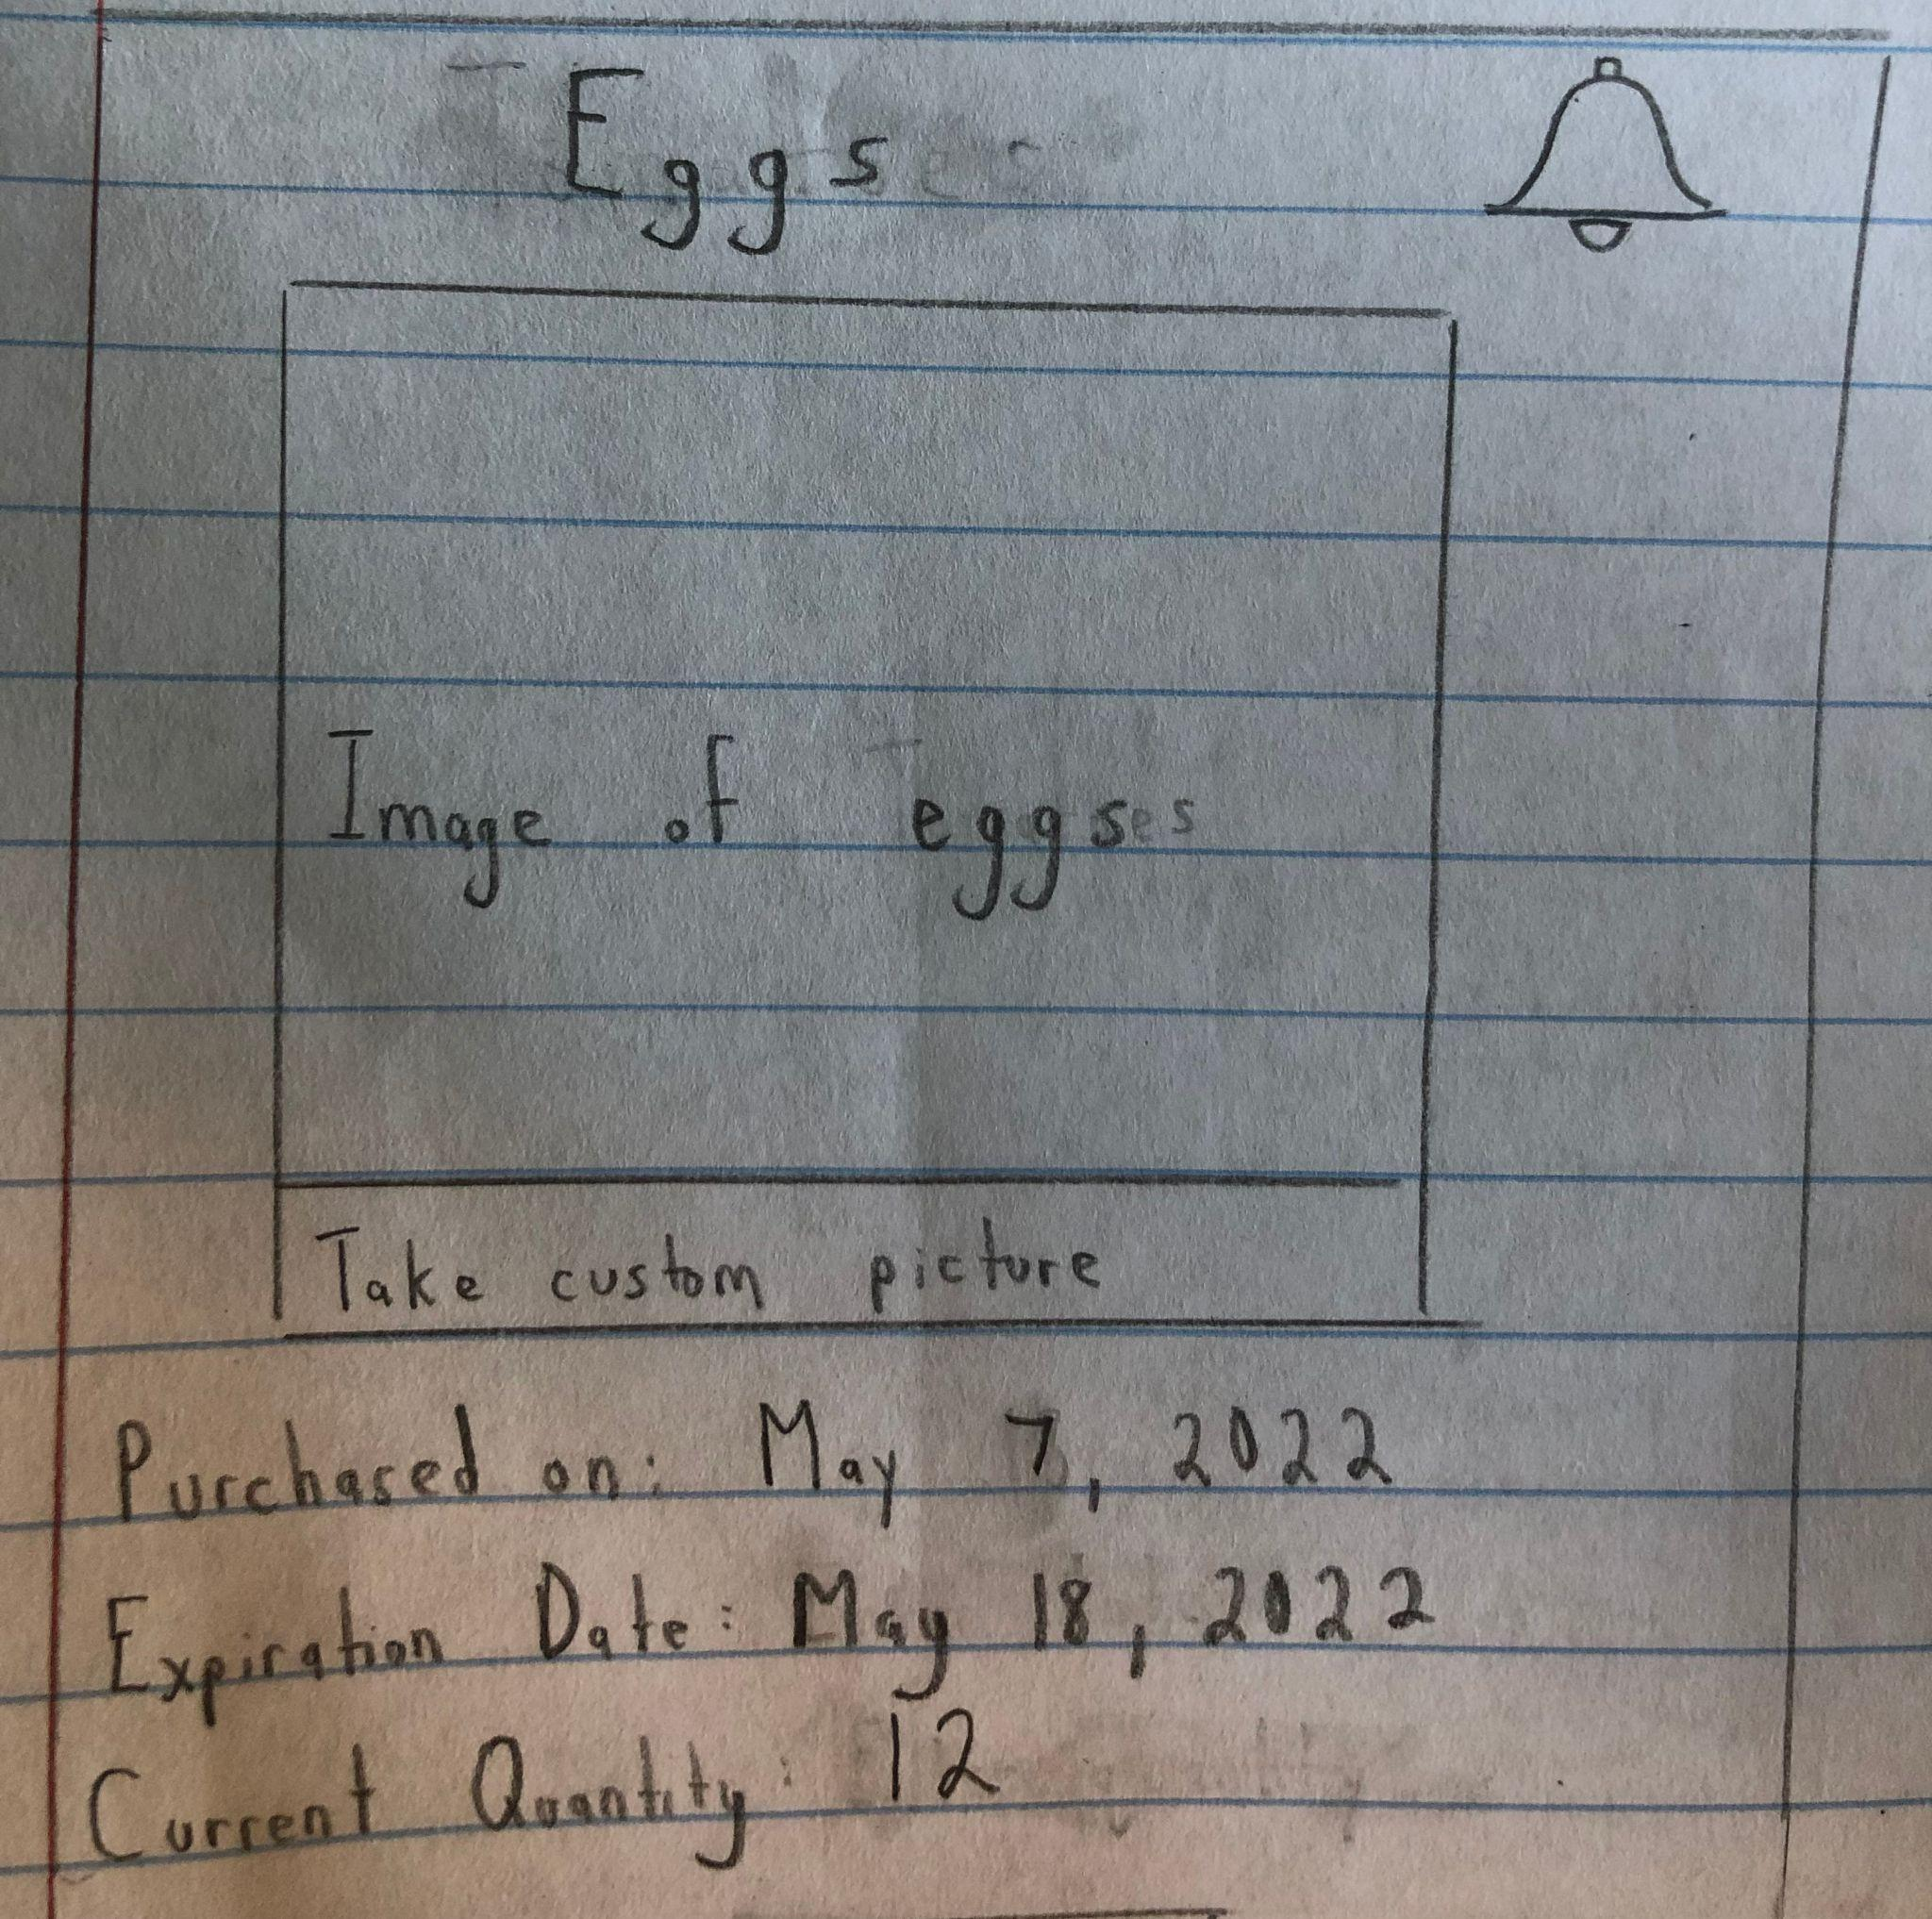 Eggs
Image of eggs
Take custom picture
Purchased on: May 7, 2022
Expiration Date: May 18, 2022
Current Quantity: 12